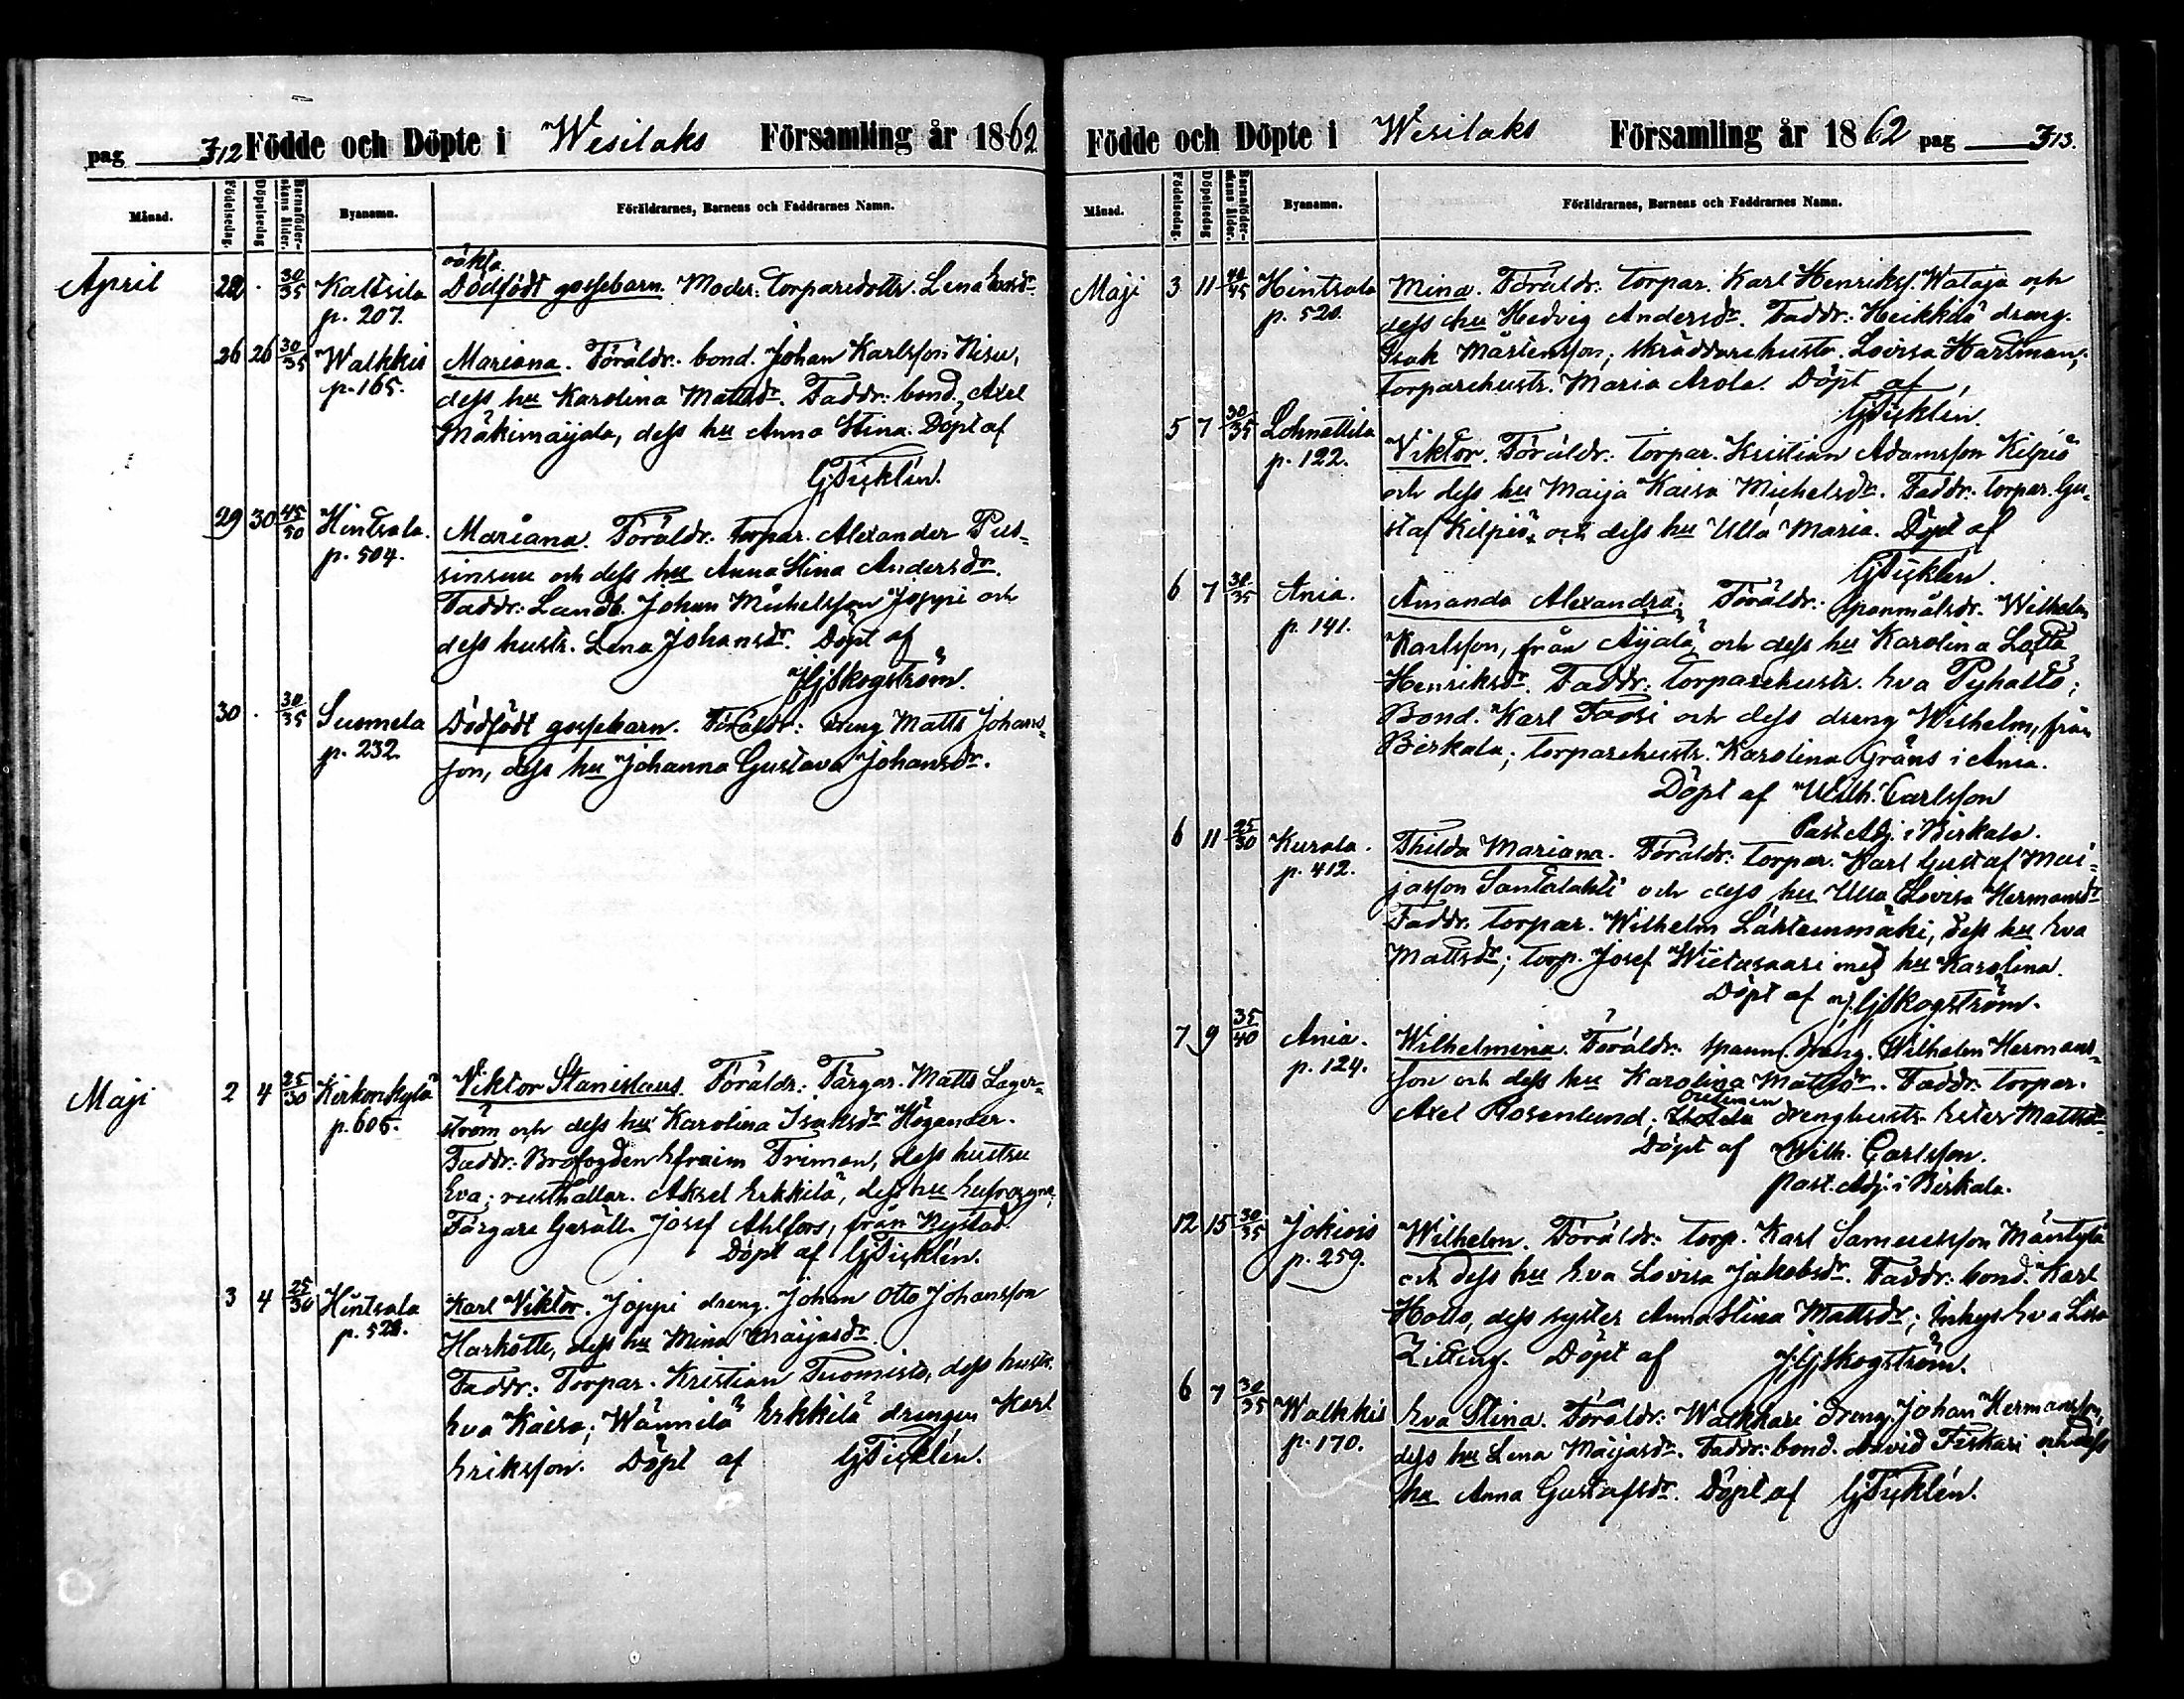 pag 712 Födde och Döpte i Wesilaks Församling år 1862
Månad. Födelsedag. Döpelsedag Barnaföderskans ålder. Byanamn. Föräldrarnes, Barnens och Faddrarnes Namn.
oäkta
April 22 . 30/35 Kaltsila Dödfödt gossebarn. Moder: torparedottr. Lena
p. 207.
26 26 30/35 Walkkis Mariana. Föräldr: bond. Johan Karlsson Nisu,
p. 165. dess hu Karolina Mattsdr. Faddr: bond. Axel
Mäkimaijala, dess hu Anna Stina. Döpt af
GTicklén.
29 30 45/50 Hintsala. Mariana. Föräldr: torpar. Alexander Pus-
p. 504. sinsuu och dess hu Anna Stina Andersdr.
Faddr: Landb. Johan Michelsson Joppi och
dess hustr. Lena Johansdr. Döpt af
JGSkogström.
30 . 30/35 Suomela Dödfödt gossebarn. Föräldr: dreng Matts Johans-
p. 232. son, dess hu Johanna Gustava Johansdr.
Maji 2 4 25/30 Kirkonkylä Viktor Stanislaus. Föräldr: Färgar. Matts Lager-
p. 605. ström och dess hu Karolina Isaksdr Högander.
Faddr: Brofogden Efraim Friman, dess hustru
Eva; rusthållar. Aksel Erkkilä, dess hu Eufrosyna;
Färgare Gesäll. Josef Ahlfors, från Nystad.
Döpt af GTicklén.
3 4 25/30 Hintsala Karl Viktor. Joppi dreng. Johan Otto Johansson
p. 521. Harkotte, dess hu Mina Maijasdr.
Faddr: Torpar. Kristian Tuomisto, dess hustr.
Eva Kaisa; Wännilä Erkkilä drengen Karl
Eriksson. Döpt af GTicklén.
Födde och Döpte i Wesilaks Församling år 1862 pag 713.
Månad. Födelsedag. Döpelsedag Barnaföderskans ålder. Byanamn. Föräldrarnes, Barnens och Faddrarnes Namn.
Maji 3 11 40/45 Hintsala Mina. Föräldr: torpar. Karl Henrikss. Wataja och
p. 520. dess hu Hedvig Andersdr. Faddr: Heikkilä dreng.
Isak Mårtensson; skräddarehustr. Lovisa Hartman;
torparehustr. Maria Arola. Döpt af
GTicklén.
5 7 30/35 Lohnattila Viktor. Föräldr: torpar. Kristian Adamsson Kilpiö
p. 122. och dess hu Maija Kaisa Michelsdr. Faddr: torpar. Gu-
staf Kilpiö, och dess hu Ulla Maria. Döpt af
GTicklén.
6 7 30/35 Ania. Amanda Alexandra. Föräldr: spanmålsdr. Wilhelm
p. 141. Karlsson, från Aijälä, och dess hu Karolina Lotta
Henriksdr. Faddr: torparehustr. Eva Pyhältö;
Bond. Karl Toosi och dess dreng Wilhelm, från
Birkala; torparehustr. Karolina Gräns i Ania.
Döpt af Wilh. Carlsson
Past. Adj. i Birkala.
6 11 25/30 Kurala. Thilda Mariana. Föräldr: torpar. Karl Gustaf Mai-
p. 412. jasson Santalahti och dess hu Ulla Lovisa Hermansdr
Faddr. torpar. Wilhelm Lähteenmäki, dess hu Eva
Mattsdr; torp. Josef Wietasaari med hu Karolina.
Döpt af JGSkogström.
7 9 35/40 Ania. Wilhelmina. Föräldr: spanm. dräng. Wilhelm Hermans-
p. 124. son och dess hu Karolina Mattsdr. Faddr: torpar.
Axel Rosenlund; drenghustr. Ester Mattsdr
Döpt af Wilh. Carlsson.
past. Adj. i Birkala.
12 15 30/35 Jokiois Wilhelm. Föräldr: torp. Karl Samuelsson Mäntylä
p. 259. och dess hu Eva Lovisa Jakobsdr. Faddr: bond. Karl
Hollo, dess syster Anna Stina Mattsdr; inhys Eva Lisa
Zitting. Döpt af JGSkogström.
6 7 30/35 Walkkis Eva Stina. Föräldr: Walkkari dreng. Johan Hermansson,
p. 170. dess hu Lena Maijasdr. Faddr: bond. David Fiskari och dess
hu Anna Gustafsdr. Döpt af GTicklén.